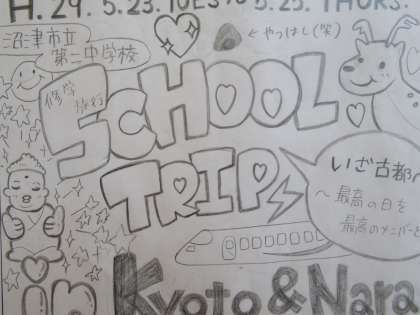 H.29. 5.23.TUES to 5.25. THURS.
沼津市立
第二中学校
←やっはし(笑)
修学
旅行
SCHOOL
TRIP
いざ古都へ
～最高の日を
最高のメンバーと
in Kyoto & Nara